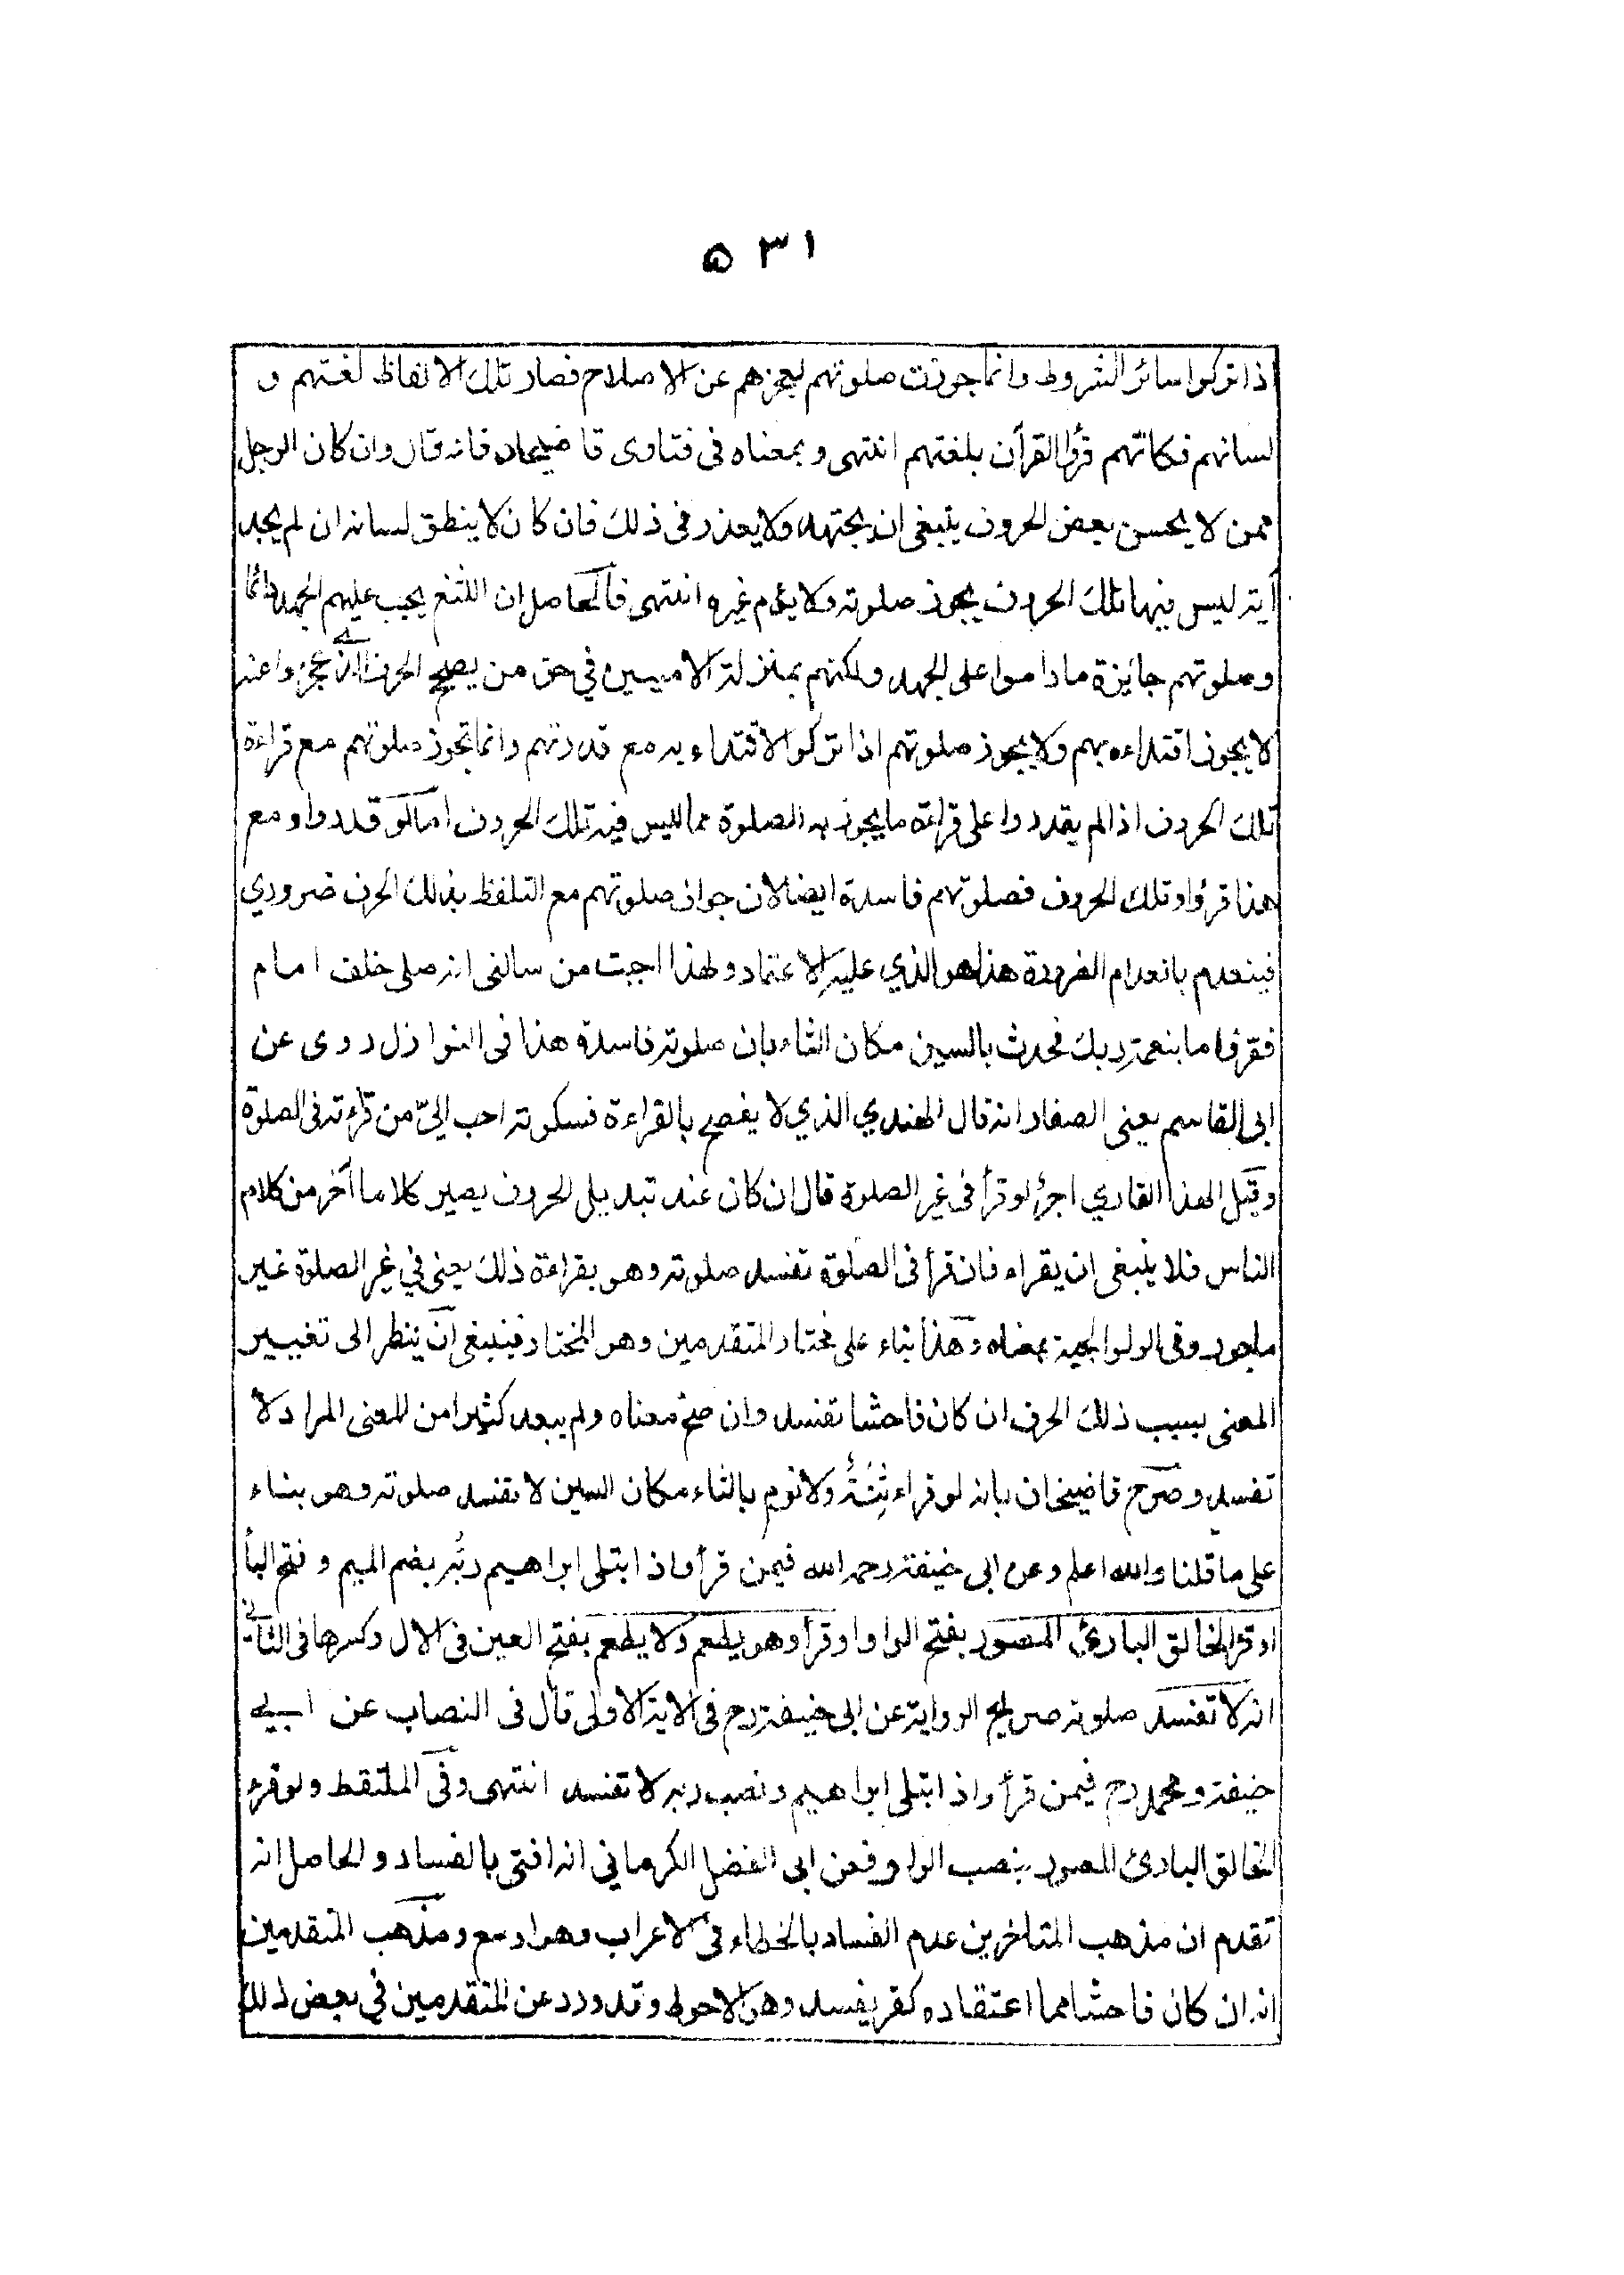 ٥٣١
اذا تركوا سائر الشروط وانما جوزت صلوتهم لعجزهم عن الاصلاح فصار تلك الالفاظ لغتهم و
لسانهم فكانهم قرؤا القرآن بلغتهم انتهى وبمعناه فى فتاوى قاضيخان فانه قال وان كان الرجل
ممن لا يحسن بعض الحروف ينبغى ان يجتهد ولا يعذر فى ذلك فان كان لا ينطق لسانه ان لم يجد
آية ليس فيها تلك الحروف يجوز صلوته ولا يؤم غيره انتهى فالحاصل ان اللثغ يجب عليهم الجهد دائما
وصلوتهم جائزة ما داموا على الجهد ولكنهم بمنزلة الاميين في حق من يصح الحرف الذى عجزوا عنه
لا يجوز اقتداءه بهم ولا يجوز صلوتهم اذا تركوا الاقتداء به مع قدرتهم وانما تجوز صلوتهم مع قراءة
تلك الحروف اذا لم يقدروا على قراءة ما يجوز به الصلوة مما ليس فيه تلك الحروف اما لو قدروا ومع
هذا قرؤا وتلك الحروف فصلوتهم فاسدة ايضا لان جواز صلوتهم مع التلفظ بذلك الحرف ضروري
فينعدم بانعدام الضرورة هذا هو الذي عليه الاعتماد ولهذا اجبت من سالنى انه صلى خلف امام
فقرؤا ما بنعمة ربك فحدث بالسين مكان الثاء بان صلوته فاسدة هذا فى النوازل روى عن
ابى القاسم يعنى الصفار انه قال الهندي الذي لا يفصح بالقراءة فسكوته احب اليّ من قراءته فى الصلوة
وقيل لهذا القاري اجر لو قرأ فى غير الصلوة قال ان كان عند تبديل الحروف يصير كلاما آخر من كلام
الناس فلا ينبغى ان يقراء فان قرأ فى الصلوة تفسد صلوته وهو بقراءة ذلك يعنى في غير الصلوة غير
ماجور وفى الولوالجية بمعناه وهذا بناء على مختار المتقدمين وهو المختار فينبغى ان ينظر الى تغيير
المعنى بسبب ذلك الحرف ان كان فاحشا تفسد وان صح معناه ولم يبعد كثيرا من المعنى المراد لا
تفسد وصرح قاضيخان بانه لو قراء ثِنَةٌ ولا نوم بالثاء مكان السين لا تفسد صلوته وهو بناء
على ما قلنا والله اعلم وعن ابى حنيفة رحمه الله فيمن قرأ واذ ابتلى ابراهيم ربُّه بضم الميم وفتح البأ
او قرأ الخالق البارئ المصور بفتح الواو او قرأ وهو يطعم ولا يطعم بفتح العين فى الال وكسرها فى الثاني
انه لا تفسد صلوته صريح الرواية عن ابى حنيفة رح فى الاية الاولى قال فى النصاب عن ابي
حنيفة ومحمد رح فيمن قرأ واذ ابتلى ابراهيم ونصب ربه لا تفسد انتهى وفى الملتقط ولو قرء
الخالق البارئ المصور بنصب الواو فعن ابى الفضل الكرماني انه افتى بالفساد والحاصل انه
تقدم ان مذهب المتاخرين عدم الفساد بالخطاء فى الاعراب وهو اوسع ومذهب المتقدمين
انه ان كان فاحشا مما اعتقاده كفر يفسد وهو الاحوط وقد ورد عن المتقدمين في بعض ذلك